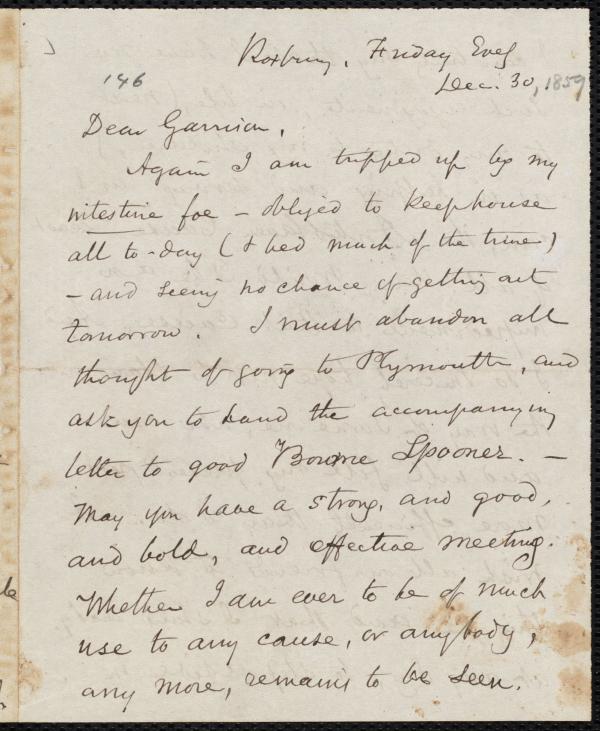 Roxbury, Friday Eveg
146
Dec. 30, 1859
Dear Garrison,
Again I am tripped up by my
intestine foe – obliged to keep house
all to-day (& bed much of the time)
– and seeing no chance of getting out
tomorrow. I must abandon all
thought of going to Plymouth, and
ask you to hand the accompanying
letter to good Bourne Spooner. –
May you have a strong, and good,
and bold, and effective meeting.
Whether I am ever to be of much
use to any cause, or anybody,
any more, remains to be seen.